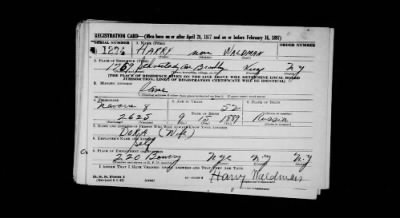 REGISTRATION CARD—(Men born on or after April 28, 1877 and on or before February 16, 1897)
SERIAL NUMBER 1. NAME (Print) ORDER NUMBER
1276 HARRY none WALDMAN
2. PLACE OF RESIDENCE (Print)
1269 Ave Brooklyn Kings N.Y
[THE PLACE OF RESIDENCE GIVEN ON THE LINE ABOVE WILL DETERMINE LOCAL BOARD JURISDICTION; LINE 2 OF REGISTRATION CERTIFICATE WILL BE IDENTICAL]
3. MAILING ADDRESS
Same
4. TELEPHONE 5. AGE IN YEARS 6. PLACE OF BIRTH
Navarre 8 52
2625 9 15 1889 Russia
7. NAME AND ADDRESS OF PERSON WHO WILL ALWAYS KNOW YOUR ADDRESS
DORA (Wife)
8. EMPLOYER'S NAME AND ADDRESS
Self
9. PLACE OF EMPLOYMENT OR BUSINESS
220 Bowery NYC N.Y N.Y
I AFFIRM THAT I HAVE VERIFIED ABOVE ANSWERS AND THAT THEY ARE TRUE.
D. S. S. Form 1
Harry Waldman